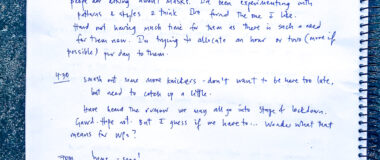 people are asking about masks. I've been experimenting with
patterns & styles & think I've found the one I like.
And not having much time for them as there is such a need
for them now. I'm trying to allocate an hour or two (more if
possible) per day to them.
4:30 smash out some more knickers - don't want to be here too late,
but need to catch up a little.
Have heard the rumour we may all go into stage 4 lockdown.
Gawd - hope not. But I guess if we have to... Wonder what that
means for
home